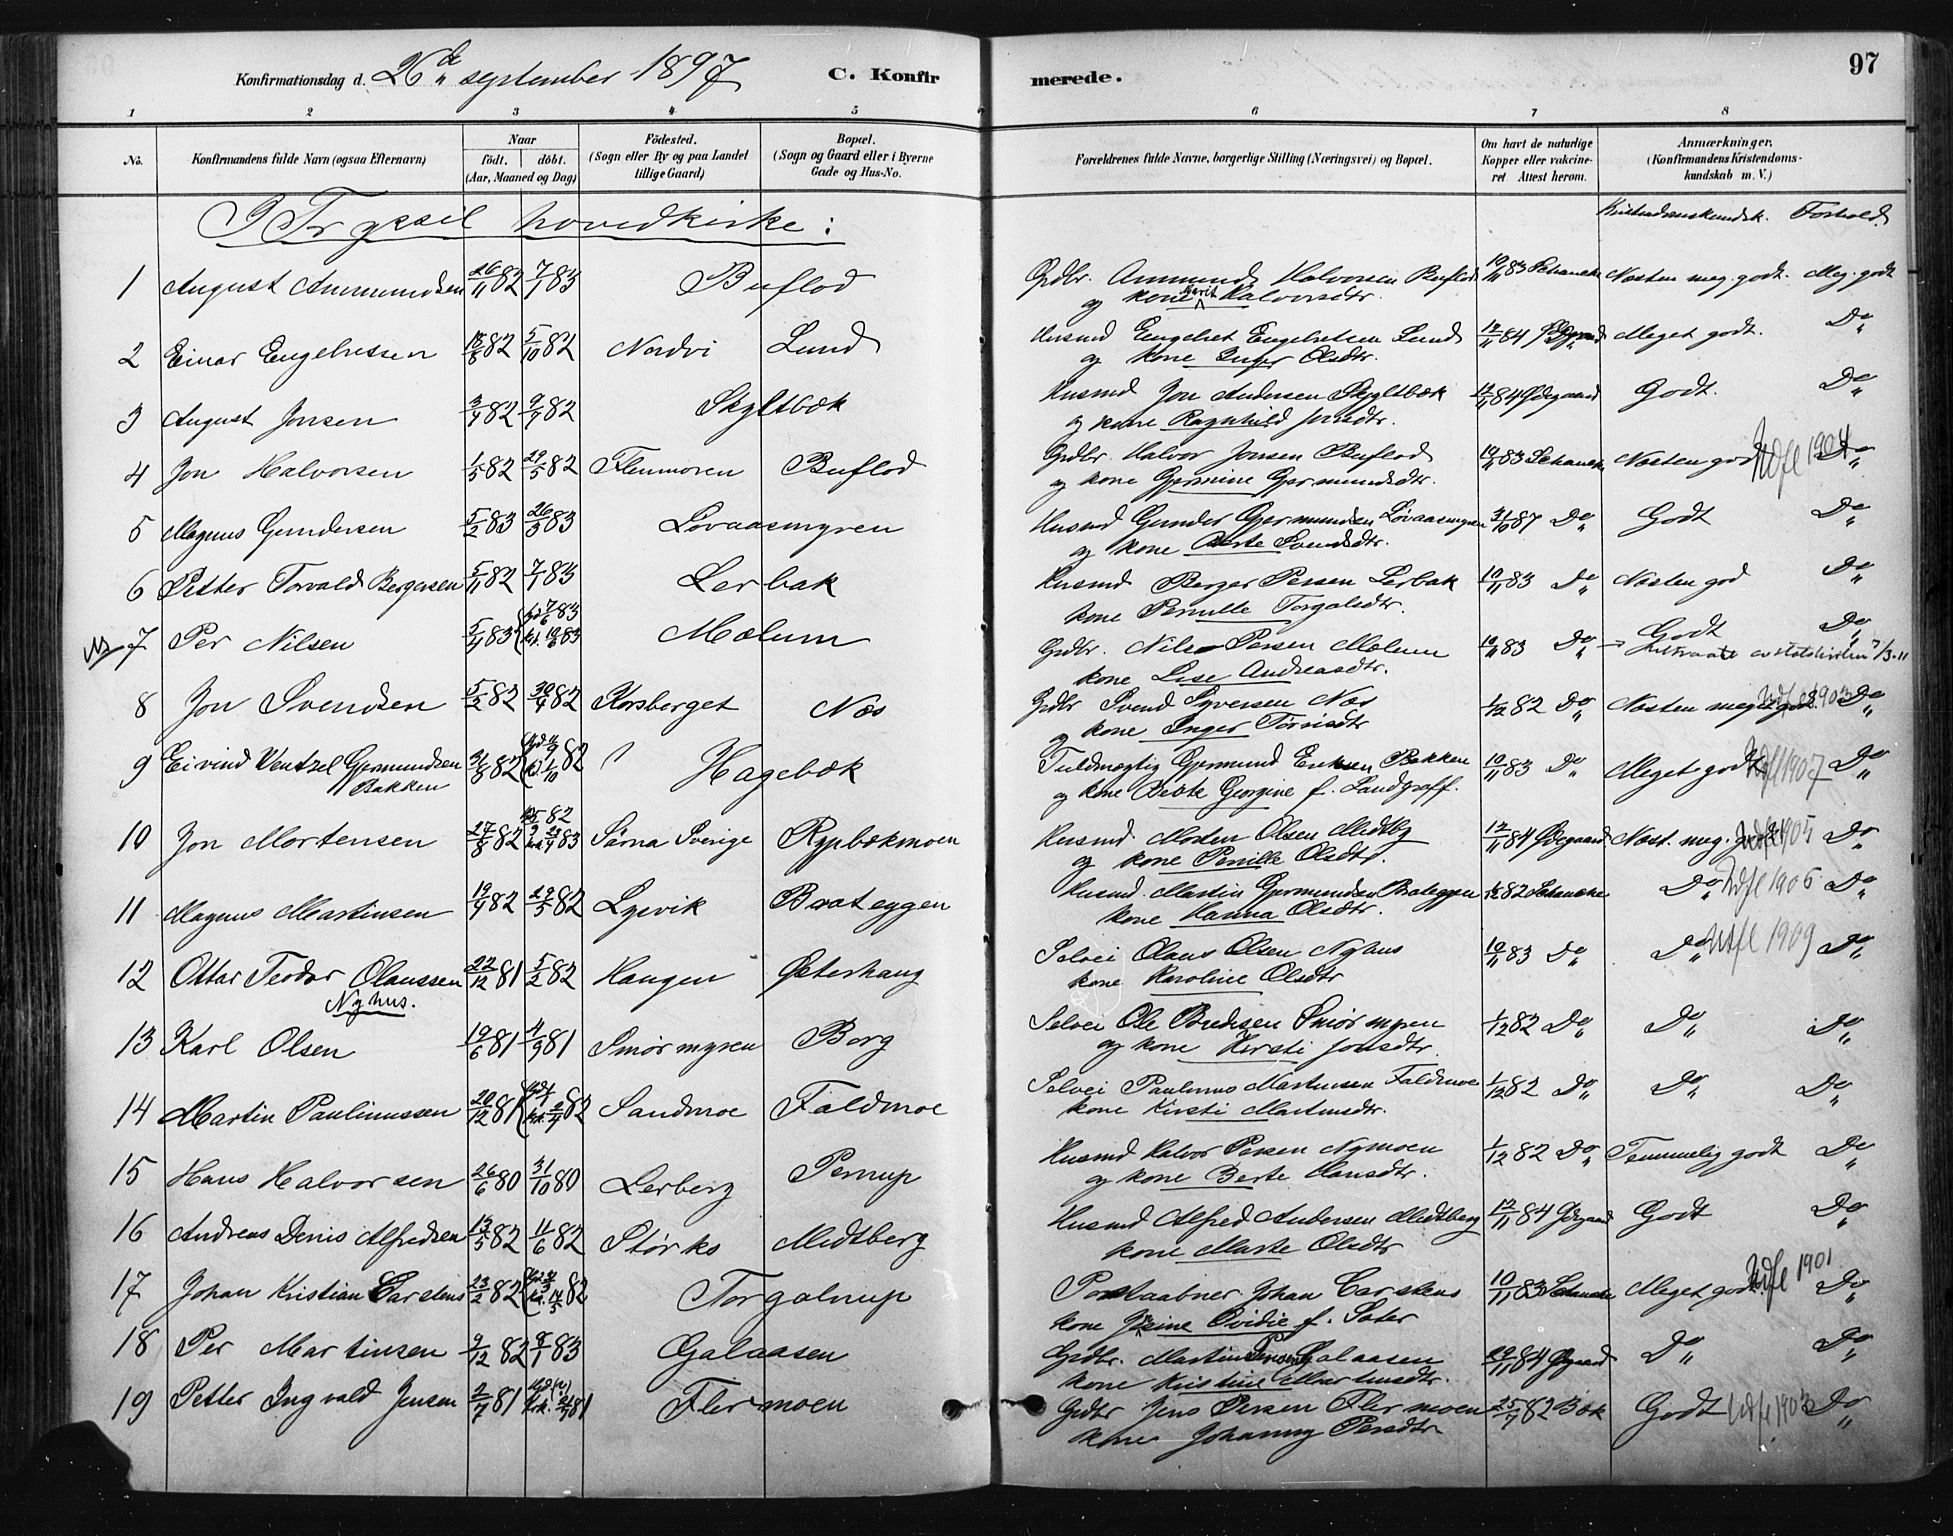 Konfirmationsdag d. 26de september 1897 C. Konfirmerede. 97
1 2 3 4 5 6 7 8
No. Konfirmandens fulde Navn (ogsaa Efternavn) Naar födt. döbt. (Aar, Maaned og Dag) Födested. (Sogn eller By og paa Landet tillige Gaard) Bopæl. (Sogn og Gaard eller i Byerne Gade og Hus-No. Forældrenes fulde Navne, borgerlige Stilling (Næringsvei) og Bopæl. Om havt de naturlige Kopper eller vakcineret Attest herom. Anmærkninger. (Konfirmandens Kristendomskundskab m. V.)
I Trysil hovedkirke: Kristendomskundsk. Forhold.
1 August Ammundsen 26/11 82 7/1 83 Buflod Grdbr. Ammund Halvorsen Buflod 10/11 83 Schancke Næsten meg. godt. Meg. godt
og kone Marit Halvorsdtr.
2 Einar Engebretsen 18/8 82 5/10 82 Nordvi Lund Husmd Engebret Engebretsen Lund 12/11 84 Meget godt. Do
og kone Inger Olsdtr.
3 August Jonsen 3/7 82 9/7 82 Skyltbæk Husmd Jon Andersen Skyltbæk 12/11 84 Ødegaard Godt. Do
og kone Ragnhild Jonsdtr.
4 Jon Halvorsen 1/5 82 29/5 82 Flenmoren Buflod Grdbr. Halvor Jonsen Buflod 10/11 83 Schancke Næsten god Udfl 1904 Do
og kone Gjermine Gjermundsdtr.
5 Magnus Gundersen 5/2 83 26/3 83 Lovaasmyren Husmd Gunder Gjermundsen Løvaasmyren 31/10 87 Do Godt Do
og kone Berte Svendsdtr.
6 Petter Torvald Bergersen 5/11 82 7/1 83 Lerbak Husmd Berger Persen Lerbak 10/11 83 Do Næsten god Do
kone Pernille Torgalsdtr.
7 Per Nilsen 5/4 83 7/6 83 kr. 10/6 83 Mælum Grdbr. Nils Persen Mælum 10/11 83 Do Godt Do
kone Lise Andreasdtr. av statskirken 7/3-11
8 Jon Svendsen 5/2 82 30/4 82 Korsberget Næs Grdbr Svend Syversen Næs 1/12 82 Do Næsten meget godt Udfl 1903 Do
og kone Inger Törrisdtr
9 Eivind Ventzel Gjermundsen 31/8 82 1/10 82 Hagebæk Fuldmægtig Gjermund Eriksen Bakken 10/11 83 Do Meget godt Udfl 1907 Do
Bakken og kone Beate Georgine f. Landgraff.
10 Jon Mortensen 27/8 82 83 Särna Sverige Rypbækmoen Husmd. Morten Olsen Midtby 12/11 84 Ødegaard Næst. meg. godt Udfl 1905 Do
og kone Pernille Olsdtr.
11 Magnus Martinsen 19/4 82 29/5 82 Lysvik Brateggen Husmd. Martin Gjermundsen Brateggen 1/12 82 Schancke Do Udfl 1906 Do
kone Hanna Olsdtr.
12 Ottar Teodor Olaussen 22/12 81 5/2 82 Haugen Østerhaug Selvei Olaus Olsen Nyhus 10/11 83 Do Do Utfl 1909 Do
Nyhus. kone Karoline Olsdtr
13 Karl Olsen 19/6 81 4/9 81 Smörmyren Borg Selvei Ole Smörmyren 1/12 82 Do Do Do
og kone Kirsti Jonsdtr.
14 Martin Paulinussen 20/12 81 82 Sandmoe Faldmoe Selvei Paulinus Martinsen Faldmoe 1/12 82 Do Do Do
kone Kirsti Martinsdtr.
15 Hans Halvorsen 26/6 80 31/10 80 Lerberg Pernup Husmd Halvor Persen Nymoen 1/12 82 Do Temmelig godt Do
og kone Berte Hansdtr.
16 Andreas Denis Alfredsen 13/5 82 11/6 82 Störks Midtberg Husmd Alfred Andersen Midtberg 12/11 84 Ødegaard Godt Do
kone Marte Olsdtr
17 Johan Kristian Carstens 23/2 82 82 Torgalnup Postaabner Johan Carstens 10/11 83 Schancke Meget godt. Udfl 1901 Do
kone Josine Ovidie f. Sater
18 Per Martinsen 9/12 82 8/1 83 Galaasen Grdbr. Martin Persen Galaasen 20/11 84 Ødegaard Do Do
kone Kristine Martinsdtr.
19 Petter Ingvald Jensen 2/7 81 81 Flermoen Grdbr Jens Persen Flermoen 25/7 82 Bæk Godt Udfl 1903 Do
kone Johanny Persdtr